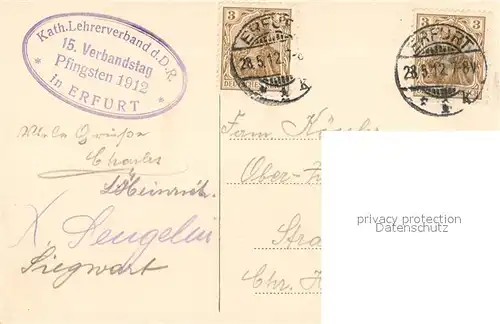 Kath. Lehrerverband d. D. R.
15. Verbandstag
Pfingsten 1912
in ERFURT
3
ERFURT
28.5.12.
* * k
3
ERFURT
28.5.12. 7-8N
* * k
Viele Grüße
Charles
Heinrich.
Siegwart
Fam.
Ober-
Stra
Chr.
privacy protection
Datenschutz